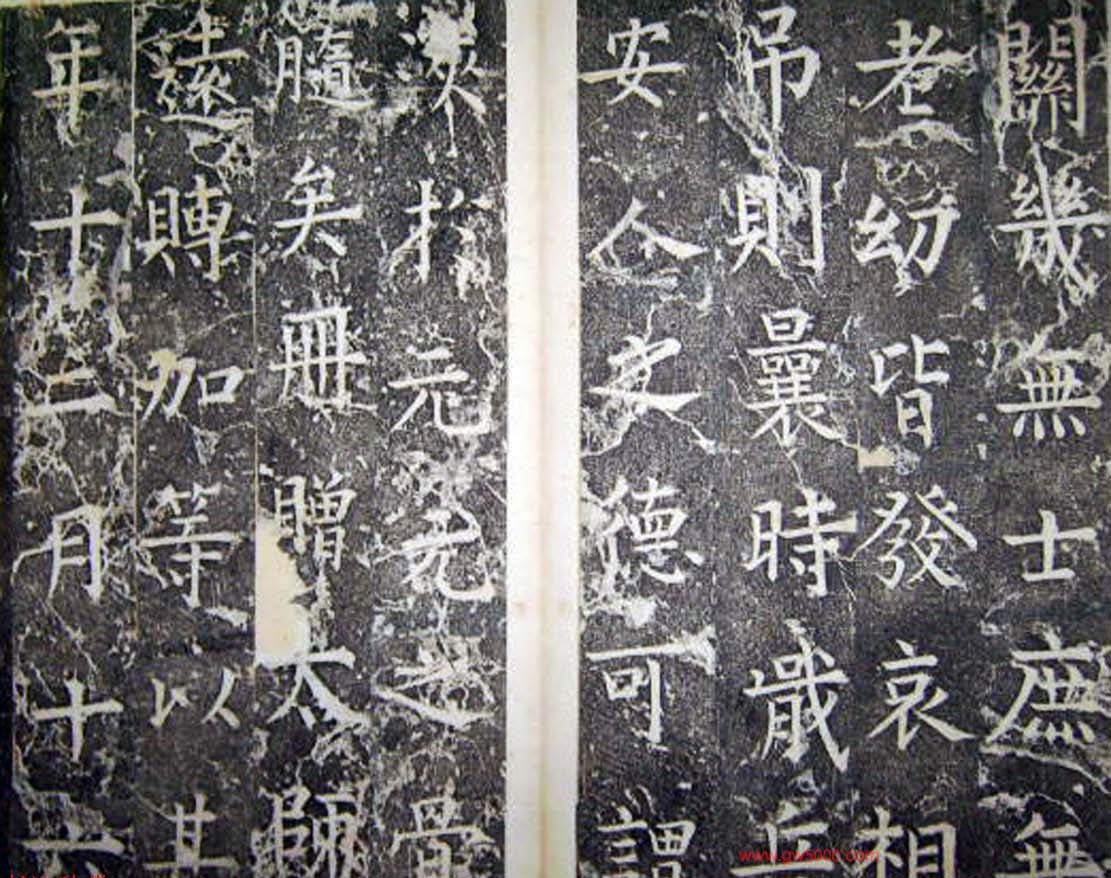 關幾無士庶無
老幼皆發哀相
吊則曩時戢兵
安人之德可謂
浹於元元之骨
髓矣冊贈太師
遠賻加等以其
年十二月十六